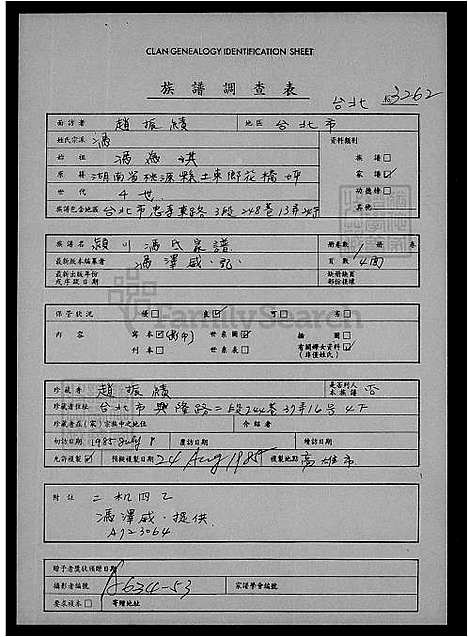 CLAN GENEALOGY IDENTIFICATION SHEET
族譜調查表
台北 3262
面訪者 趙振績 地區 台北市
姓氏宗派 馮 資料類別
始祖 馮 琪 族譜
原籍 湖南省桃源縣土東鄉花橋坪 家譜
世代 4世 功德榜
族譜包含地區 台北市忠孝東路3段248巷13弄 其他
族譜名 潁川馮氏家譜 冊卷數 1 冊 卷
最新版本編纂者 馮澤咸 頁數 4面
最新出版年份或序跋日期 缺冊缺頁部份後補
保管狀況 優 良 可 劣
內容 寫本 世系圖 插圖
刊本 世系表 有關婦女資料(非僅姓氏)
FamilySearch
珍藏者 趙振績 是否列入本族譜 否
珍藏者住址 台北市興隆路二段244巷37弄16号4F
珍藏者在(家)宗族中之地位 介紹者
初訪日期 1985 July 8 覆訪日期 續訪日期
允許複製 預擬複製日期 24 Aug 1985 複製地點 高雄市
附註 二机四乙
馮澤咸提供
A723064
贈予者獎狀獲贈日期
攝影者編號 A634-53 家譜學會編號
要求複本 寄贈地址